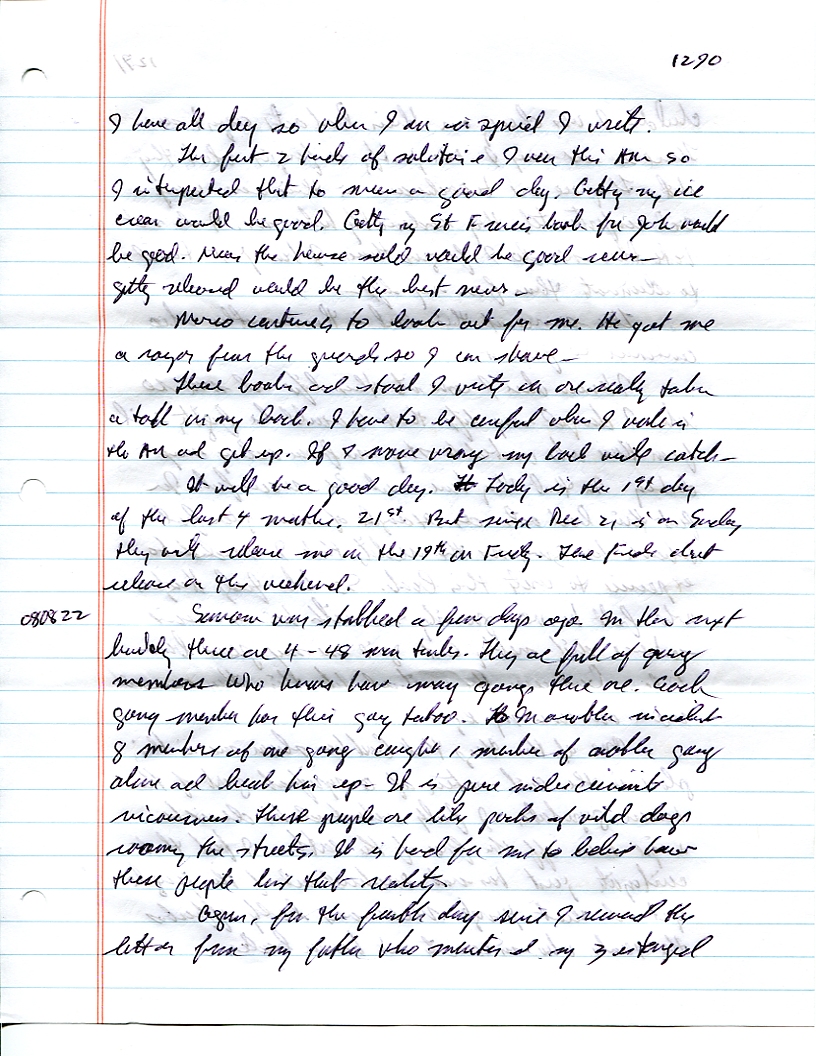 1290
I have all day so when I am inspired I write.
The first 2 hands of solitaire I won this AM so
I interpeted that to mean a good day. Getting my ice
cream would be good. Getting my St Francis book for John would
be good. News the house sold would be good news—
getting released would be the best news—
Marco continues to look out for me. He got me
a razor from the guards so I can shave—
These books and stool I write on are really taken
a toll on my back. I have to be careful when I wake in
the AM and get up. If I move wrong my back will catch—
It will be a good day. Today is the 1st day
of the last 4 months. 21st. But since Dec 21 is on Sunday
they will release me on the 19th on Friday. The Feds dont
release on the weekend.
080822 Someone was stabbed a few days ago. In the next
building there are 4 - 48 man tanks. They are full of gang
members who knows how many gangs there are. Each
gang member has their gang tatoo. In another incident
8 members of one gang caught 1 member of another gang
alone and beat him up— It is pure indiscriminate
viciousness. These people are like packs of wild dogs
roaming the streets. It is hard for me to believe how
these people live that reality.
Again, for the fourth day since I received the
letter from my father who mentioned my 3 estranged